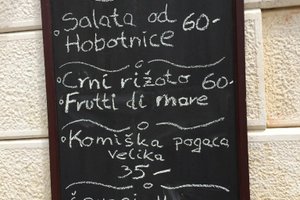 Salata od 60-
Hobotnice
Crni rižoto 60-
Frutti di mare
Komiška pogaca
velika
35-